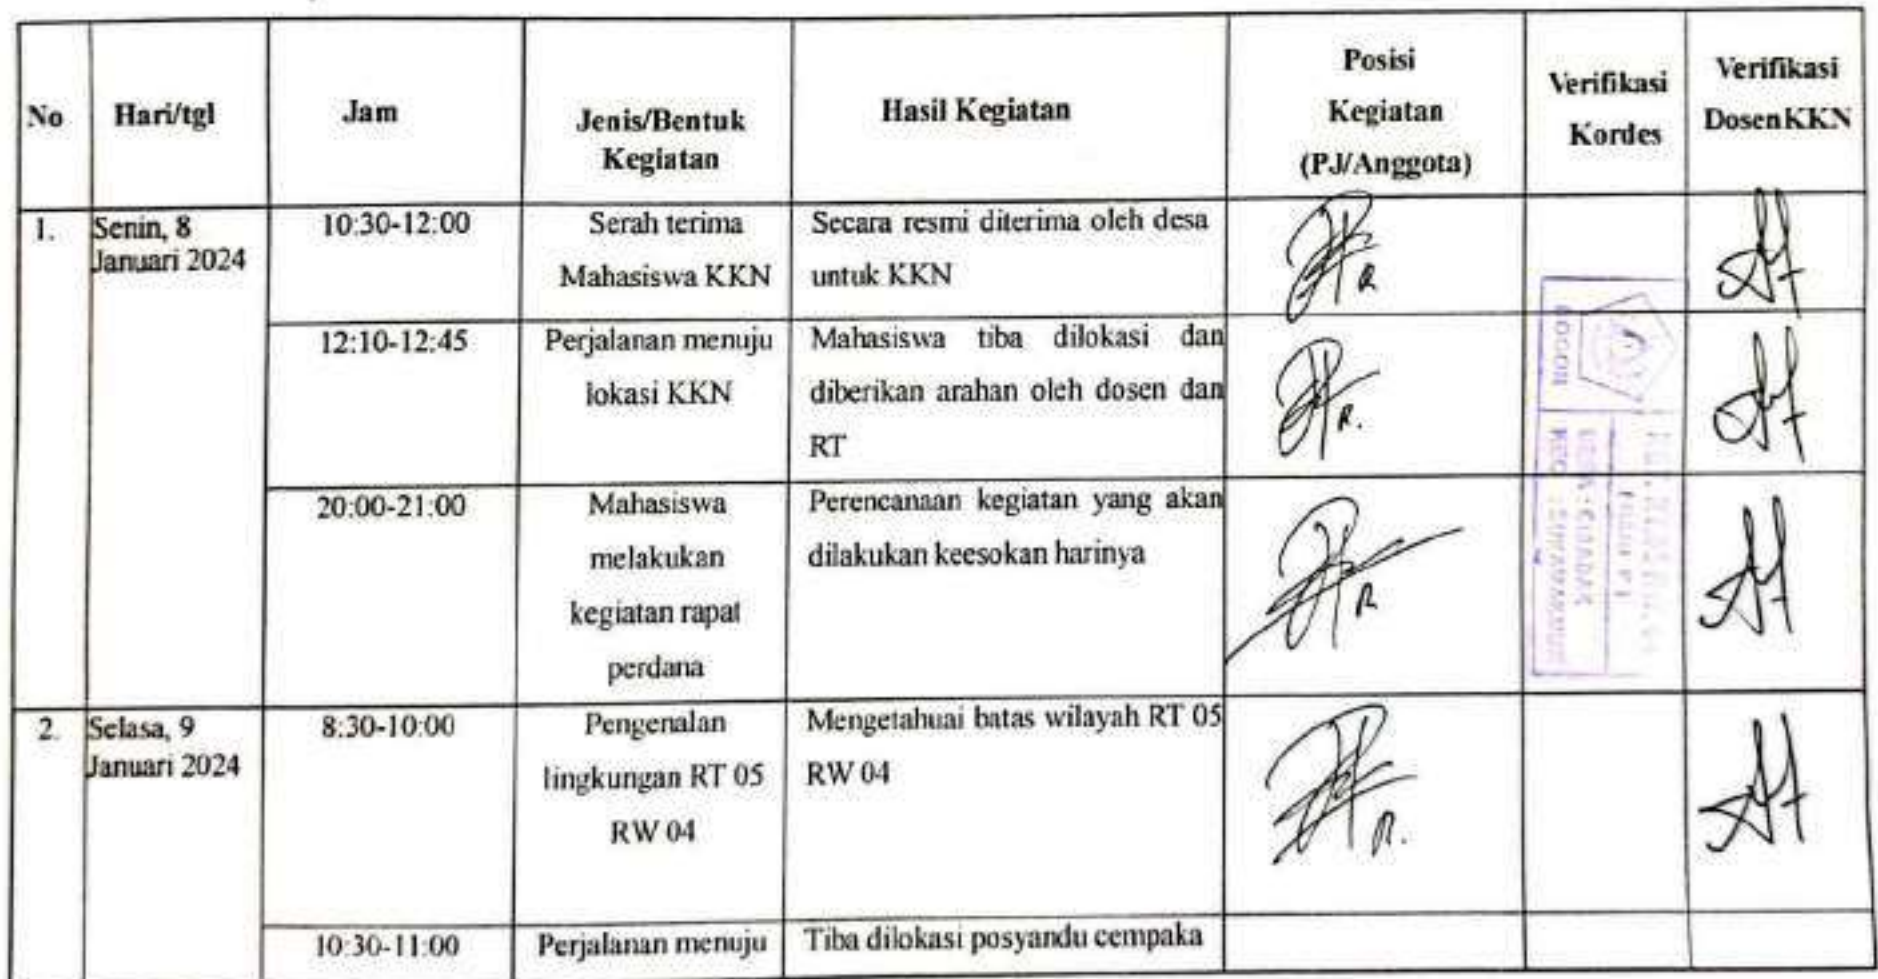 No
Hari/tgl
Jam
Jenis/Bentuk
Kegiatan
Hasil Kegiatan
Posisi
Kegiatan
(PJ/Anggota)
Verifikasi
Kordes
Verifikasi
DosenKKN
1.
Senin, 8
Januari 2024
10:30-12:00
Serah terima
Mahasiswa KKN
Secara resmi diterima oleh desa
untuk KKN
R
12:10-12:45
Perjalanan menuju
lokasi KKN
Mahasiswa tiba dilokasi dan
diberikan arahan oleh dosen dan
RT
R.
20:00-21:00
Mahasiswa
melakukan
kegiatan rapat
perdana
Perencanaan kegiatan yang akan
dilakukan keesokan harinya
R
BOGOR
KEC
2.
Selasa, 9
Januari 2024
8:30-10:00
Pengenalan
lingkungan RT 05
RW 04
Mengetahuai batas wilayah RT 05
RW 04
R.
10:30-11:00
Perjalanan menuju
Tiba dilokasi posyandu cempaka